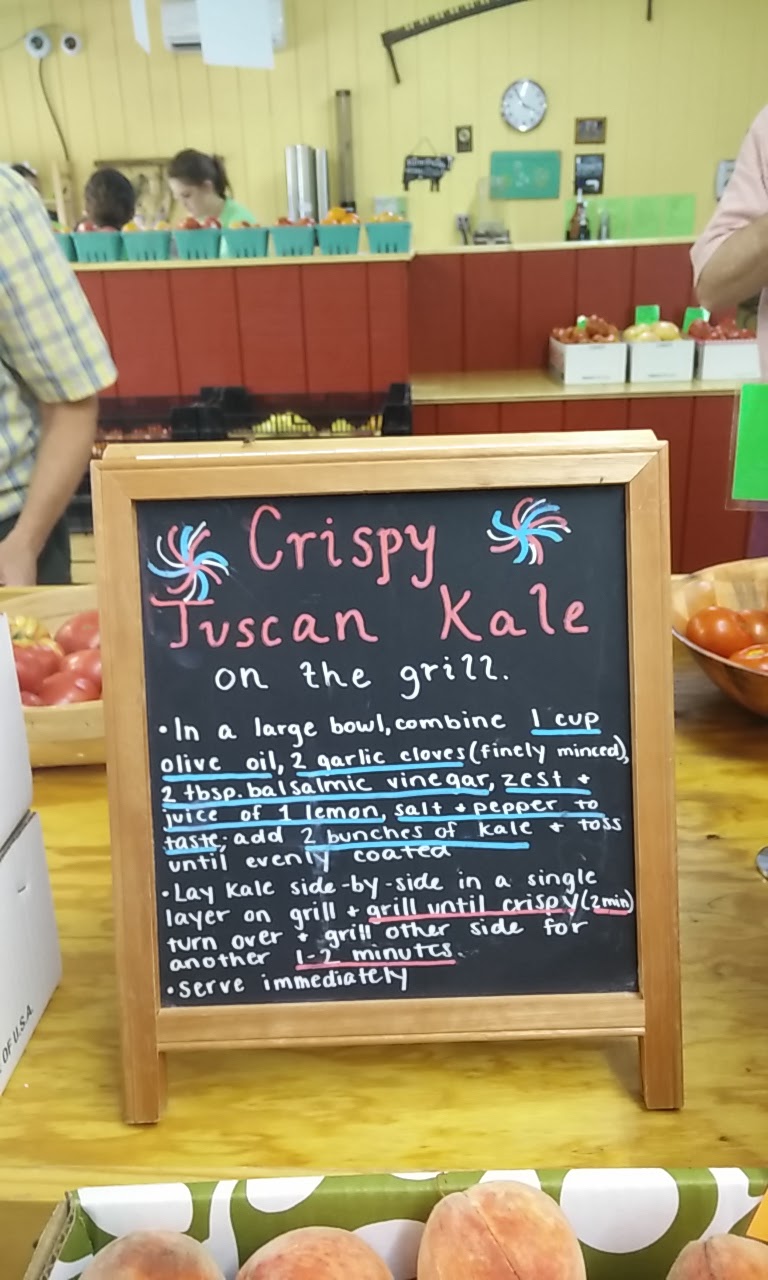 Crispy
Tuscan Kale
on the grill.
• In a large bowl, combine 1 cup
olive oil, 2 garlic cloves (finely minced),
2 tbsp. balsalmic vinegar, zest +
juice of 1 lemon, salt + pepper to
taste; add 2 bunches of kale + toss
until evenly coated
• Lay kale side-by-side in a single
layer on grill + grill until crispy (2min)
turn over + grill other side for
another 1-2 minutes.
• serve immediately
OF U.S.A.